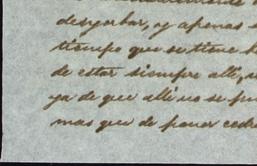 desyerbar, y apenas s
tiempo que se tiene h
de estar siempre alli,
ya de que alli no se pu
mas que de poner cedr